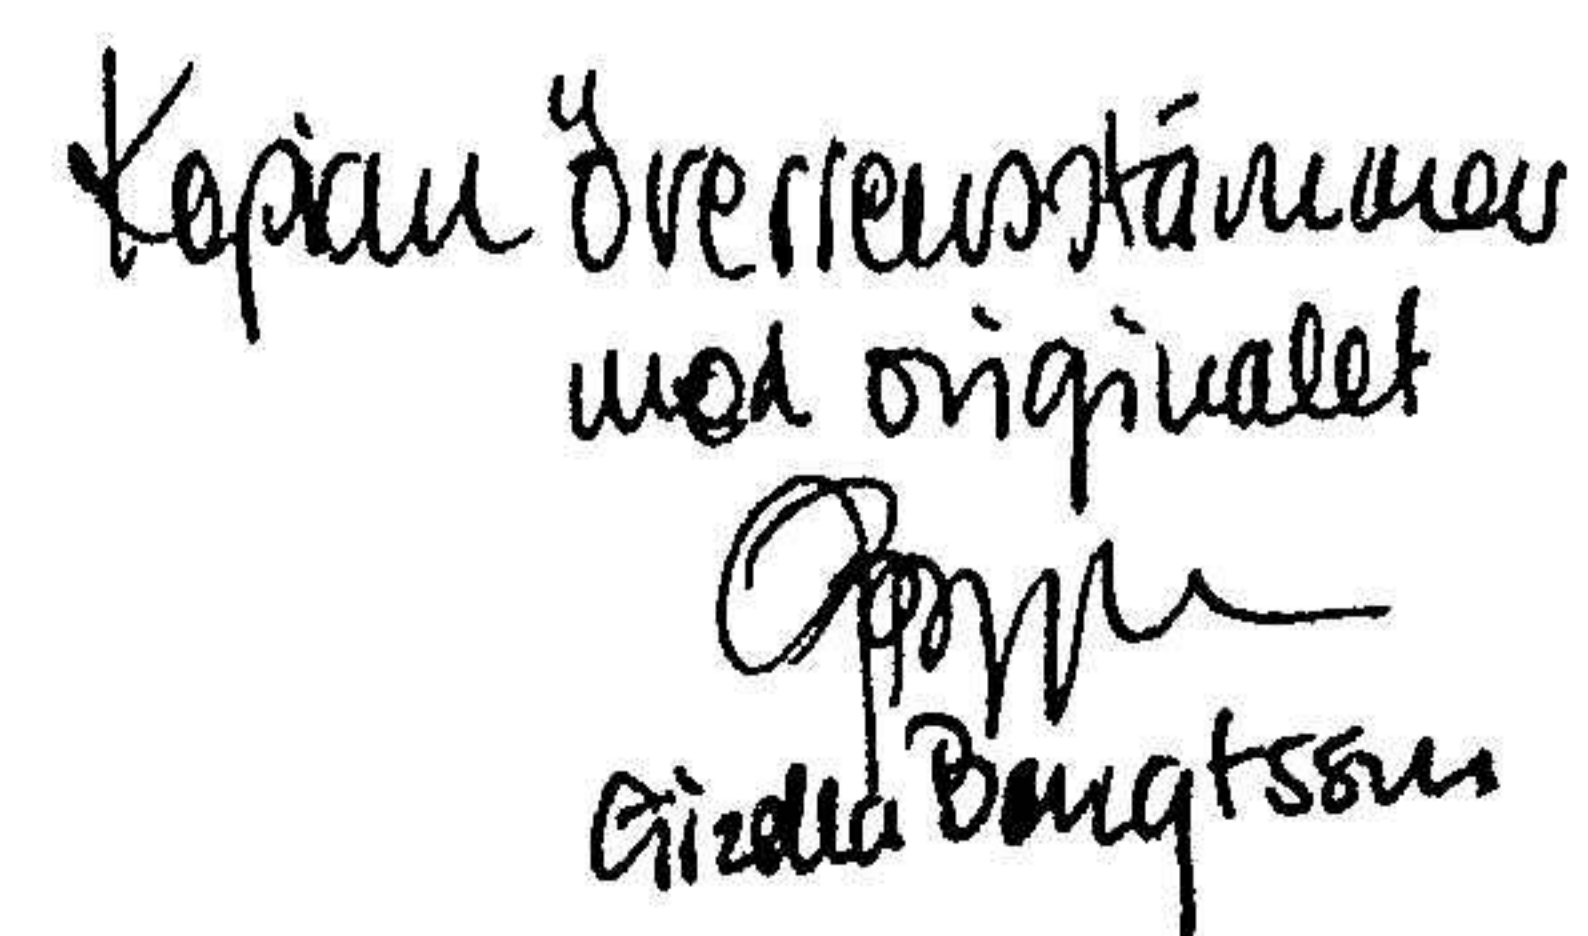 Kopian överrensstämmer
med originalet
Gizella Bengtsson